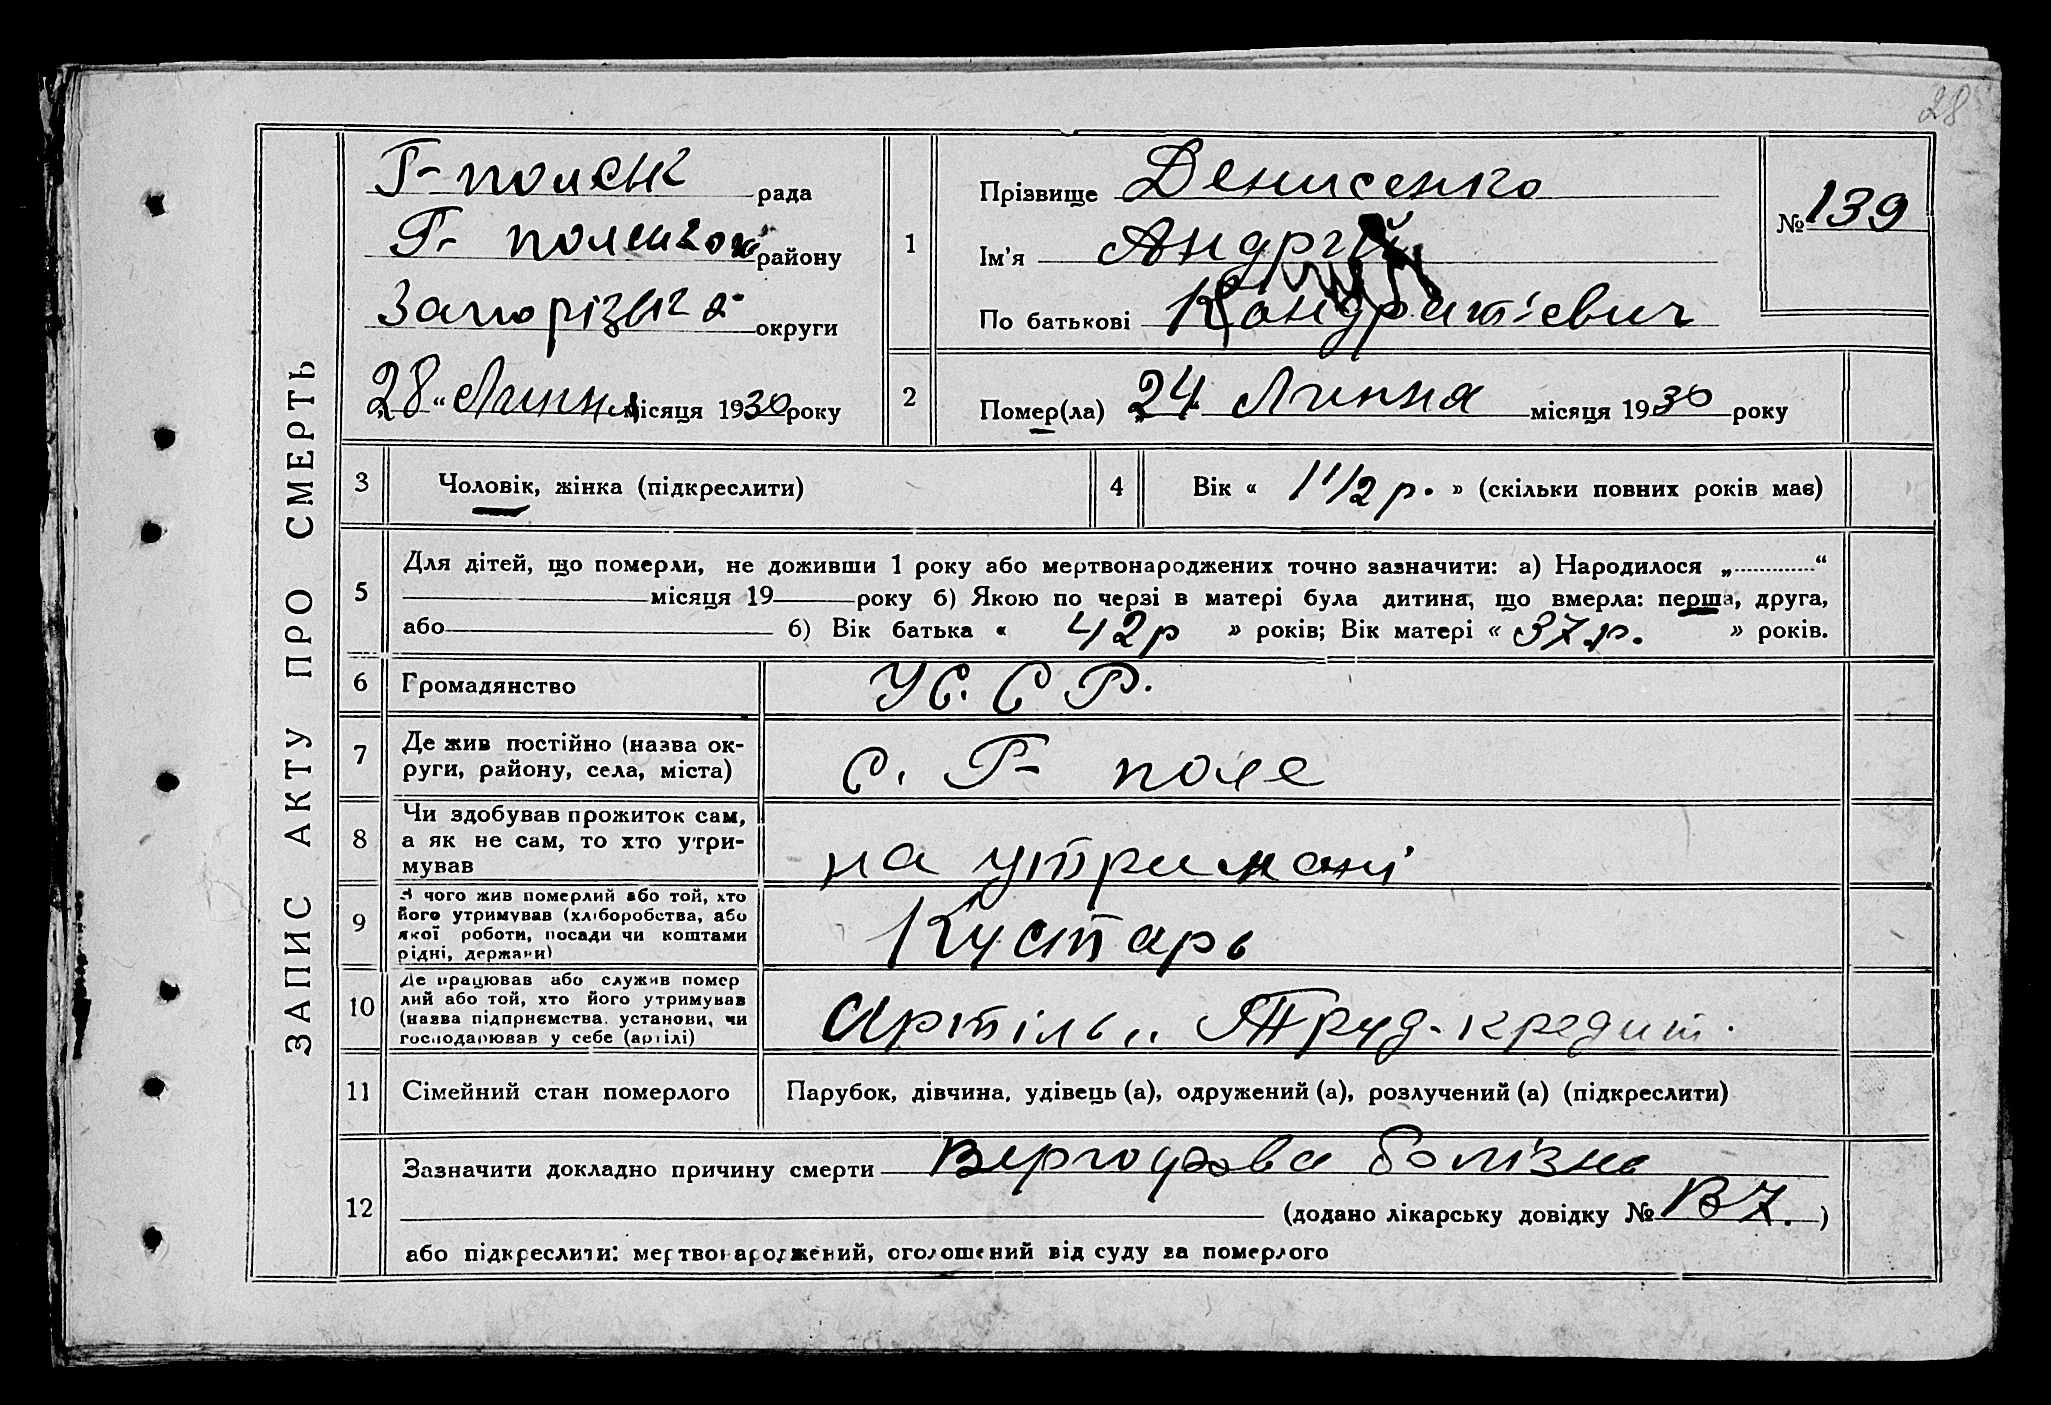 28
ЗАПИС АКТУ ПРО СМЕРТЬ
Г-полєнк рада
Г- поленкож району
Запорізька округи
28 " Липня місяця 1930 року
1
Прізвище Денисенко
Ім'я Андрій
По батькові Кондратієвич
№ 139
2
Помер(ла) 24 Липня місяця 1930 року
3
Чоловік, жінка (підкреслити)
4
Вік « 1 1/2 р. » (скільки повних років має)
5
Для дітей, що померли, не доживши 1 року або мертвонароджених точно зазначити: а) Народилося „ “
місяця 19 року б) Якою по черзі в матері була дитина, що вмерла: перша, друга,
або б) Вік батька « 42р » років; Вік матері « 37р. » років.
6
Громадянство
У.С.С.Р.
7
Де жив постійно (назва ок-
руги, району, села, міста)
с. Г- поле
8
Чи здобував прожиток сам,
а як не сам, то хто утри-
мував
на утримані
9
З чого жив померлий або той, хто
його утримував (хліборобства, або
якої роботи, посади чи коштами
рідні, держави)
Кустарь
10
Де працював або служив помер
лий або той, хто його утримував
(назва підприємства, установи, чи
господарював у себе (артілі)
Артіль „ Труд-кредит.
11
Сімейний стан померлого
Парубок, дівчина, удівець (а), одружений (а), розлучений (а) (підкреслити)
12
Зазначити докладно причину смерти болізнь
(додано лікарську довідку № В7. )
або підкреслити: мертвонароджений, оголошений від суду за померлого